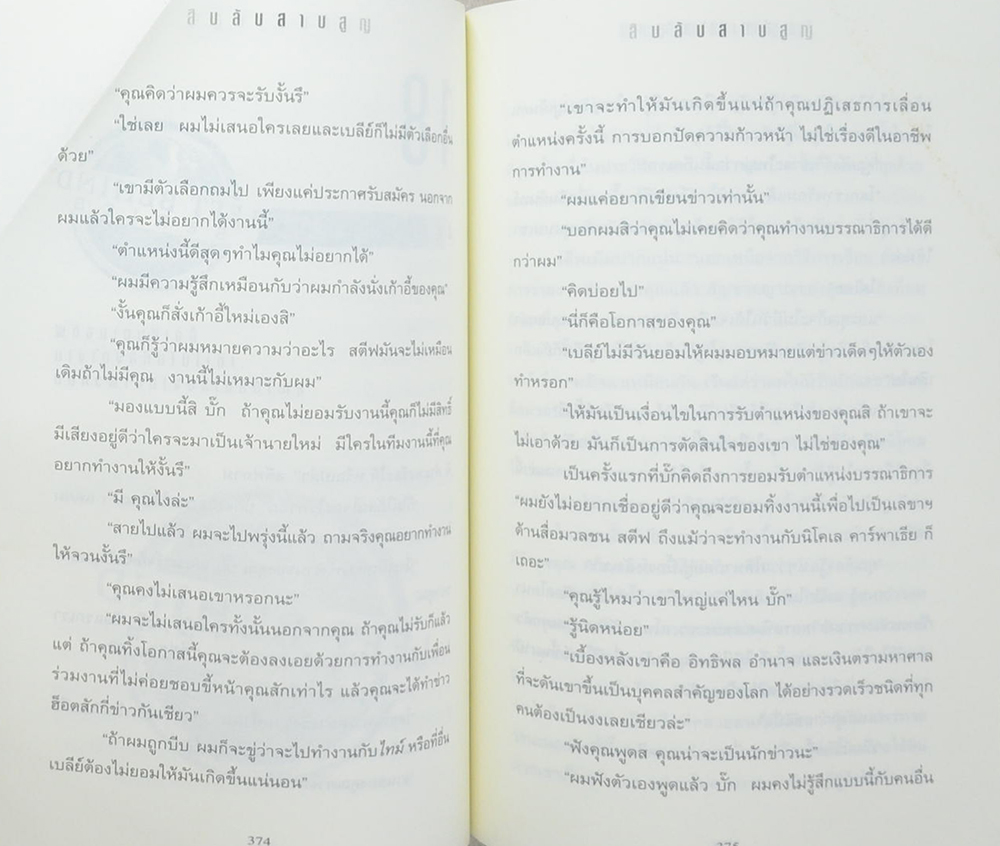 สิบลับสาบสูญ
“คุณคิดว่าผมควรจะรับงั้นรึ”
“ใช่เลย ผมไม่เสนอใครเลยและเบลีย์ก็ไม่มีตัวเลือกอื่น
ด้วย”
“เขามีตัวเลือกถมไป เพียงแค่ประกาศรับสมัคร นอกจาก
ผมแล้วใครจะไม่อยากได้งานนี้”
“ตำแหน่งนี้ดีสุดๆทำไมคุณไม่อยากได้”
“ผมมีความรู้สึกเหมือนกับว่าผมกำลังนั่งเก้าอี้ของคุณ”
“งั้นคุณก็สั่งเก้าอี้ใหม่เองสิ”
“คุณก็รู้ว่าผมหมายความว่าอะไร สตีฟมันจะไม่เหมือน
เดิมถ้าไม่มีคุณ งานนี้ไม่เหมาะกับผม”
“มองแบบนี้สิ บั๊ก ถ้าคุณไม่ยอมรับงานนี้คุณก็ไม่มีสิทธิ์
มีเสียงอยู่ดีว่าใครจะมาเป็นเจ้านายใหม่ มีใครในทีมงานนี้ที่คุณ
อยากทำงานให้งั้นรึ”
“มี คุณไงล่ะ”
“สายไปแล้ว ผมจะไปพรุ่งนี้แล้ว ถามจริงคุณอยากทำงาน
ให้จวนงั้นรึ”
“คุณคงไม่เสนอเขาหรอกนะ”
“ผมจะไม่เสนอใครทั้งนั้นนอกจากคุณ ถ้าคุณไม่รับก็แล้ว
แต่ ถ้าคุณทิ้งโอกาสนี้คุณจะต้องลงเอยด้วยการทำงานกับเพื่อน
ร่วมงานที่ไม่ค่อยชอบขี้หน้าคุณสักเท่าไร แล้วคุณจะได้ทำข่าว
ฮ็อตสักกี่ข่าวกันเชียว”
“ถ้าผมถูกบีบ ผมก็จะขู่ว่าจะไปทำงานกับไทม์ หรือที่อื่น
เบลีย์ต้องไม่ยอมให้มันเกิดขึ้นแน่นอน”
374
สิบลับสาบสูญ
“เขาจะทำให้มันเกิดขึ้นแน่ถ้าคุณปฏิเสธการเลื่อน
ตำแหน่งครั้งนี้ การบอกปัดความก้าวหน้า ไม่ใช่เรื่องดีในอาชีพ
การทำงาน”
“ผมแค่อยากเขียนข่าวเท่านั้น”
“บอกผมสิว่าคุณไม่เคยคิดว่าคุณทำงานบรรณาธิการได้ดี
กว่าผม”
“คิดบ่อยไป”
“นี่ก็คือโอกาสของคุณ”
“เบลีย์ไม่มีวันยอมให้ผมมอบหมายแต่ข่าวเด็ดๆให้ตัวเอง
ทำหรอก”
“ให้มันเป็นเงื่อนไขในการรับตำแหน่งของคุณสิ ถ้าเขาจะ
ไม่เอาด้วย มันก็เป็นการตัดสินใจของเขา ไม่ใช่ของคุณ”
เป็นครั้งแรกที่บั๊กคิดถึงการยอมรับตำแหน่งบรรณาธิการ
“ผมยังไม่อยากเชื่ออยู่ดีว่าคุณจะยอมทิ้งงานนี้เพื่อไปเป็นเลขาฯ
ด้านสื่อมวลชน สตีฟ ถึงแม้ว่าจะทำงานกับนิโคเล คาร์พาเธีย ก็
เถอะ”
“คุณรู้ไหมว่าเขาใหญ่แค่ไหน บั๊ก”
“รู้นิดหน่อย”
“เบื้องหลังเขาคือ อิทธิพล อำนาจ และเงินตรามหาศาล
ที่จะดันเขาขึ้นเป็นบุคคลสำคัญของโลก ได้อย่างรวดเร็วชนิดที่ทุก
คนต้องเป็นงงเลยเชียวล่ะ”
“ฟังคุณพูดส คุณน่าจะเป็นนักข่าวนะ”
“ผมฟังตัวเองพูดแล้ว บั๊ก ผมคงไม่รู้สึกแบบนี้กับคนอื่น